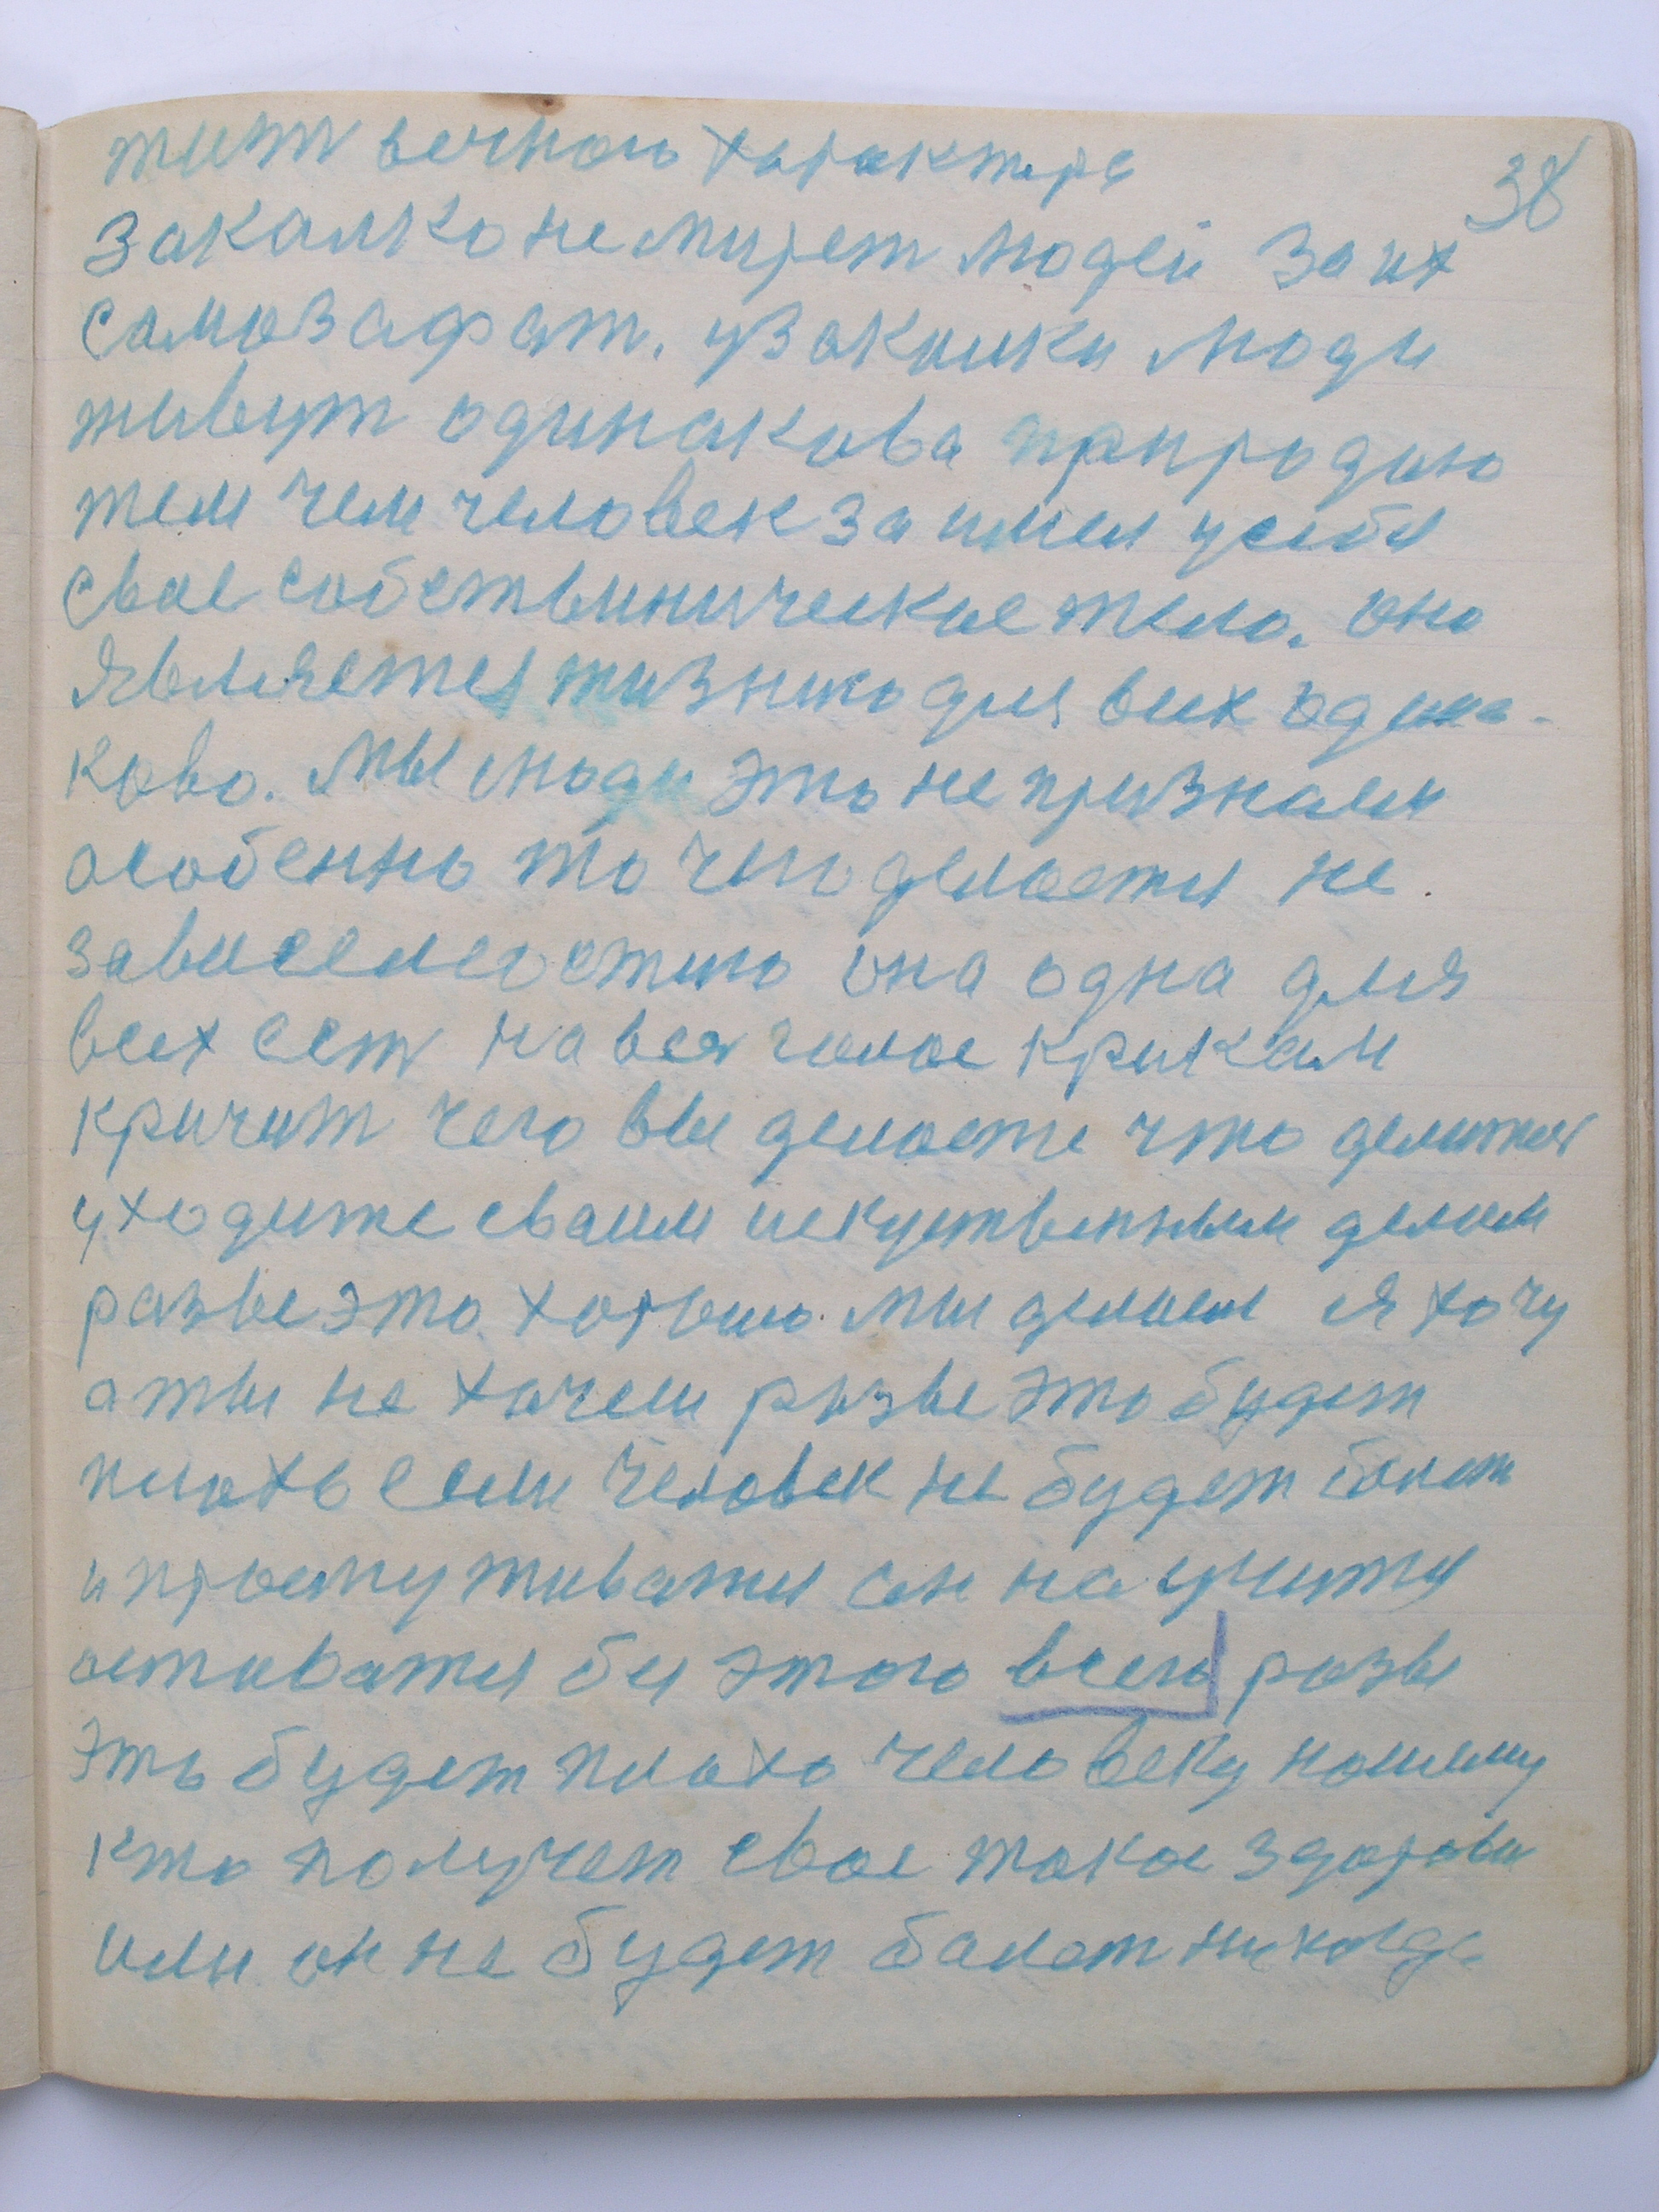 38
тит вечного характера
закалка не мирет людей за их
самозафат. у закалки люди
живут одинакова природою
тем чем человек за имел у себя
свое собственическое тело. оно
является жизнию для всех одина-
ково. Мы люди это не признаем
особенно то чего делается не
зависемостию она одна для
всех ест на вся голос криком
кричит чего вы делаете что делится
уходите сваим искуственным делом
разве это хорошо. мы делаем я хочу
а ты не хочеш разве это будет
плохо если человек не будет болет
и простуживатся он научится
оставатся бы этого всего разве
это будет плохо человеку нашему
кто получет свое такое здоровия
или он не будет балет никогда